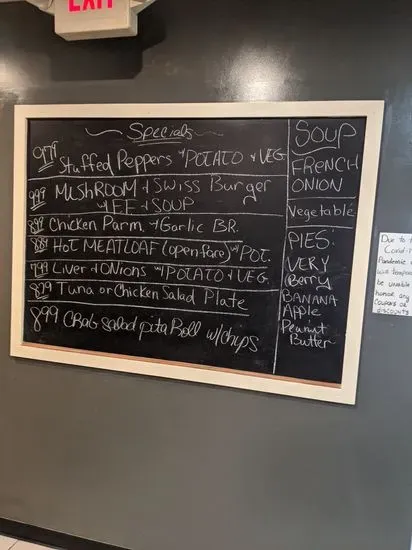 EXIT
Specials
Stuffed Peppers w/POTATO & VEG
999 MUSHROOM & Swiss Burger
w FF & SOUP
899 Chicken Parm. & Garlic BR.
HOT MEATLOAF (open face) w/ POT.
799 Liver & ONIONS w/POTATO & VEG.
899 Tuna or Chicken Salad Plate
899 Crab salad pita Roll w/chips
SOUP
FRENCH
ONION
Vegetable
PIES:
VERY
Berry
BANANA
Apple
Peanut
Butter
Due to
Covid
Pandemic
will temporar
be unable
honor any
Coupons or
discounts